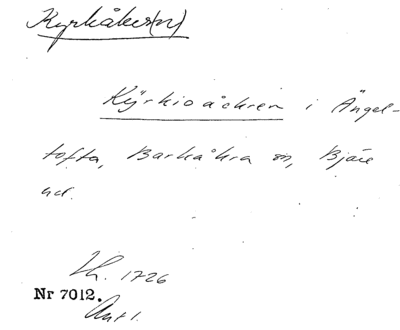 Kyrkåker(n)
Kÿrkioåckren i Ängel-
tofta, Barkåkra sn, Bjäre
hd.
Lh. 1726
Nr 7012.
Avt 1.